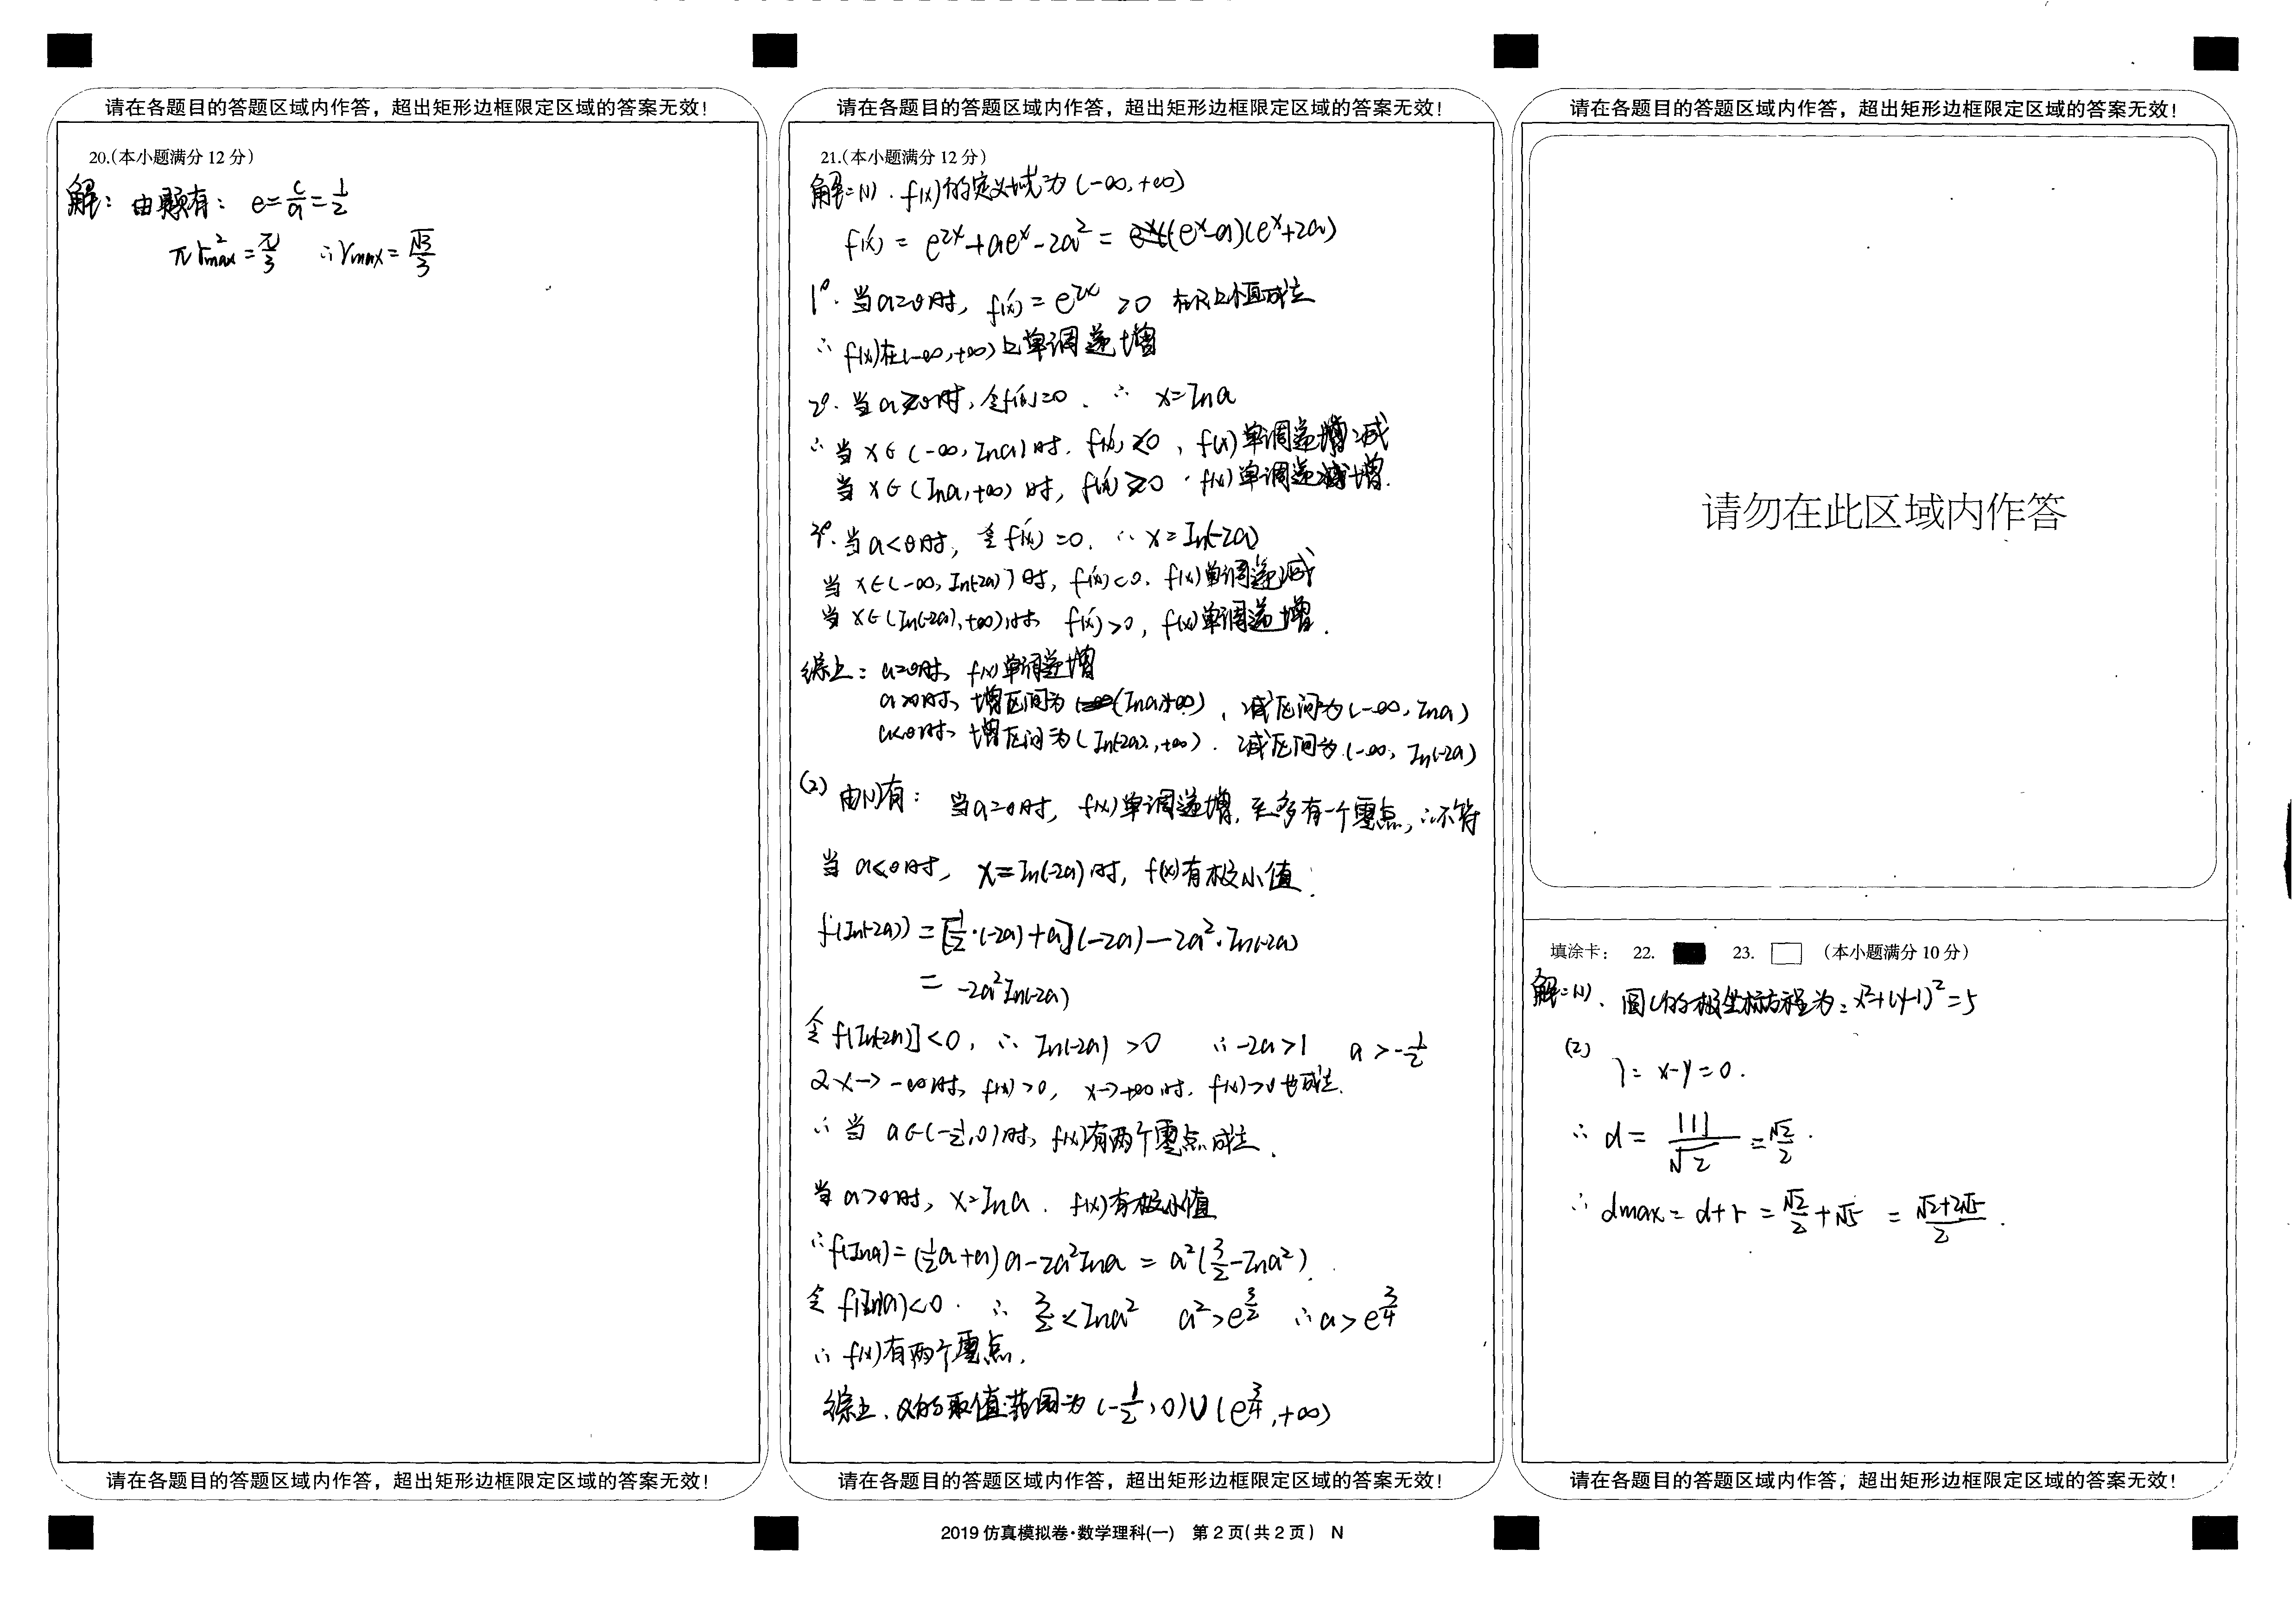 请在各题目的答题区域内作答，超出矩形边框限定区域的答案无效！
20.(本小题满分 12 分)
解：由题有：e=c/a=1/2
πr²max=π/3 ∴rmax=√3/3
请在各题目的答题区域内作答，超出矩形边框限定区域的答案无效！
请在各题目的答题区域内作答，超出矩形边框限定区域的答案无效！
21.(本小题满分 12 分)
解：(1). f(x)的定义域为(-∞,+∞)
f'(x) = e^{2x}+ae^x-2a² = (e^x-a)(e^x+2a)
1°. 当a=0时, f'(x) = e^{2x} >0 在R上恒成立
∴ f(x)在(-∞,+∞)上单调递增
2°. 当a>0时,令f'(x)=0. ∴ x=lna
∴当x∈(-∞,lna)时, f'(x)<0, f(x)单调递减
当x∈(lna,+∞)时, f'(x)>0, f(x)单调递增.
3°. 当a<0时, 令f'(x)=0. ∴ x=ln(-2a)
当x∈(-∞,ln(-2a))时, f'(x)<0, f(x)单调递减
当x∈(ln(-2a),+∞)时, f'(x)>0, f(x)单调递增.
综上：a=0时, f(x)单调递增
a>0时, 增区间为(lna,+∞), 减区间为(-∞,lna)
a<0时, 增区间为(ln(-2a),+∞). 减区间为(-∞,ln(-2a)
(2) 由(1)有：当a=0时, f(x)单调递增, 至多有一个零点,∴不符
当a<0时, x=ln(-2a)时, f(x)有极小值.
f(ln(-2a)) = [1/2·(-2a)+a](-2a)-2a²·ln(-2a)
= -2a²ln(-2a)
令f[ln(-2a)]<0, ∴ ln(-2a)>0 ∴-2a>1 a>-1/2
又x→-∞时, f(x)>0, x→+∞时, f(x)>0也成立.
∴当a∈(-1/2,0)时, f(x)有两个零点成立.
当a>0时, x=lna. f(x)有极小值
∴f(lna)=(1/2a+a)a-2a²lna = a²(3/2-lna²).
令f(lna)<0. ∴ 3/2<lna² a²>e^{3/2} ∴a>e^{3/4}
∴ f(x)有两个零点.
综上, a的取值范围为(-1/2,0)∪(e^{3/4},+∞)
请在各题目的答题区域内作答，超出矩形边框限定区域的答案无效！
请在各题目的答题区域内作答，超出矩形边框限定区域的答案无效！
请勿在此区域内作答
填涂卡： 22. 23. (本小题满分 10 分)
解：(1). 圆C的极坐标方程为：x²+(y-1)²=5
(2) l：x-y=0.
∴ d=|1|/√2=√2/2.
∴ dmax=d+r=√2/2+√5 =(√2+2√5)/2.
请在各题目的答题区域内作答，超出矩形边框限定区域的答案无效！
2019 仿真模拟卷·数学理科(一) 第 2 页(共 2 页) N